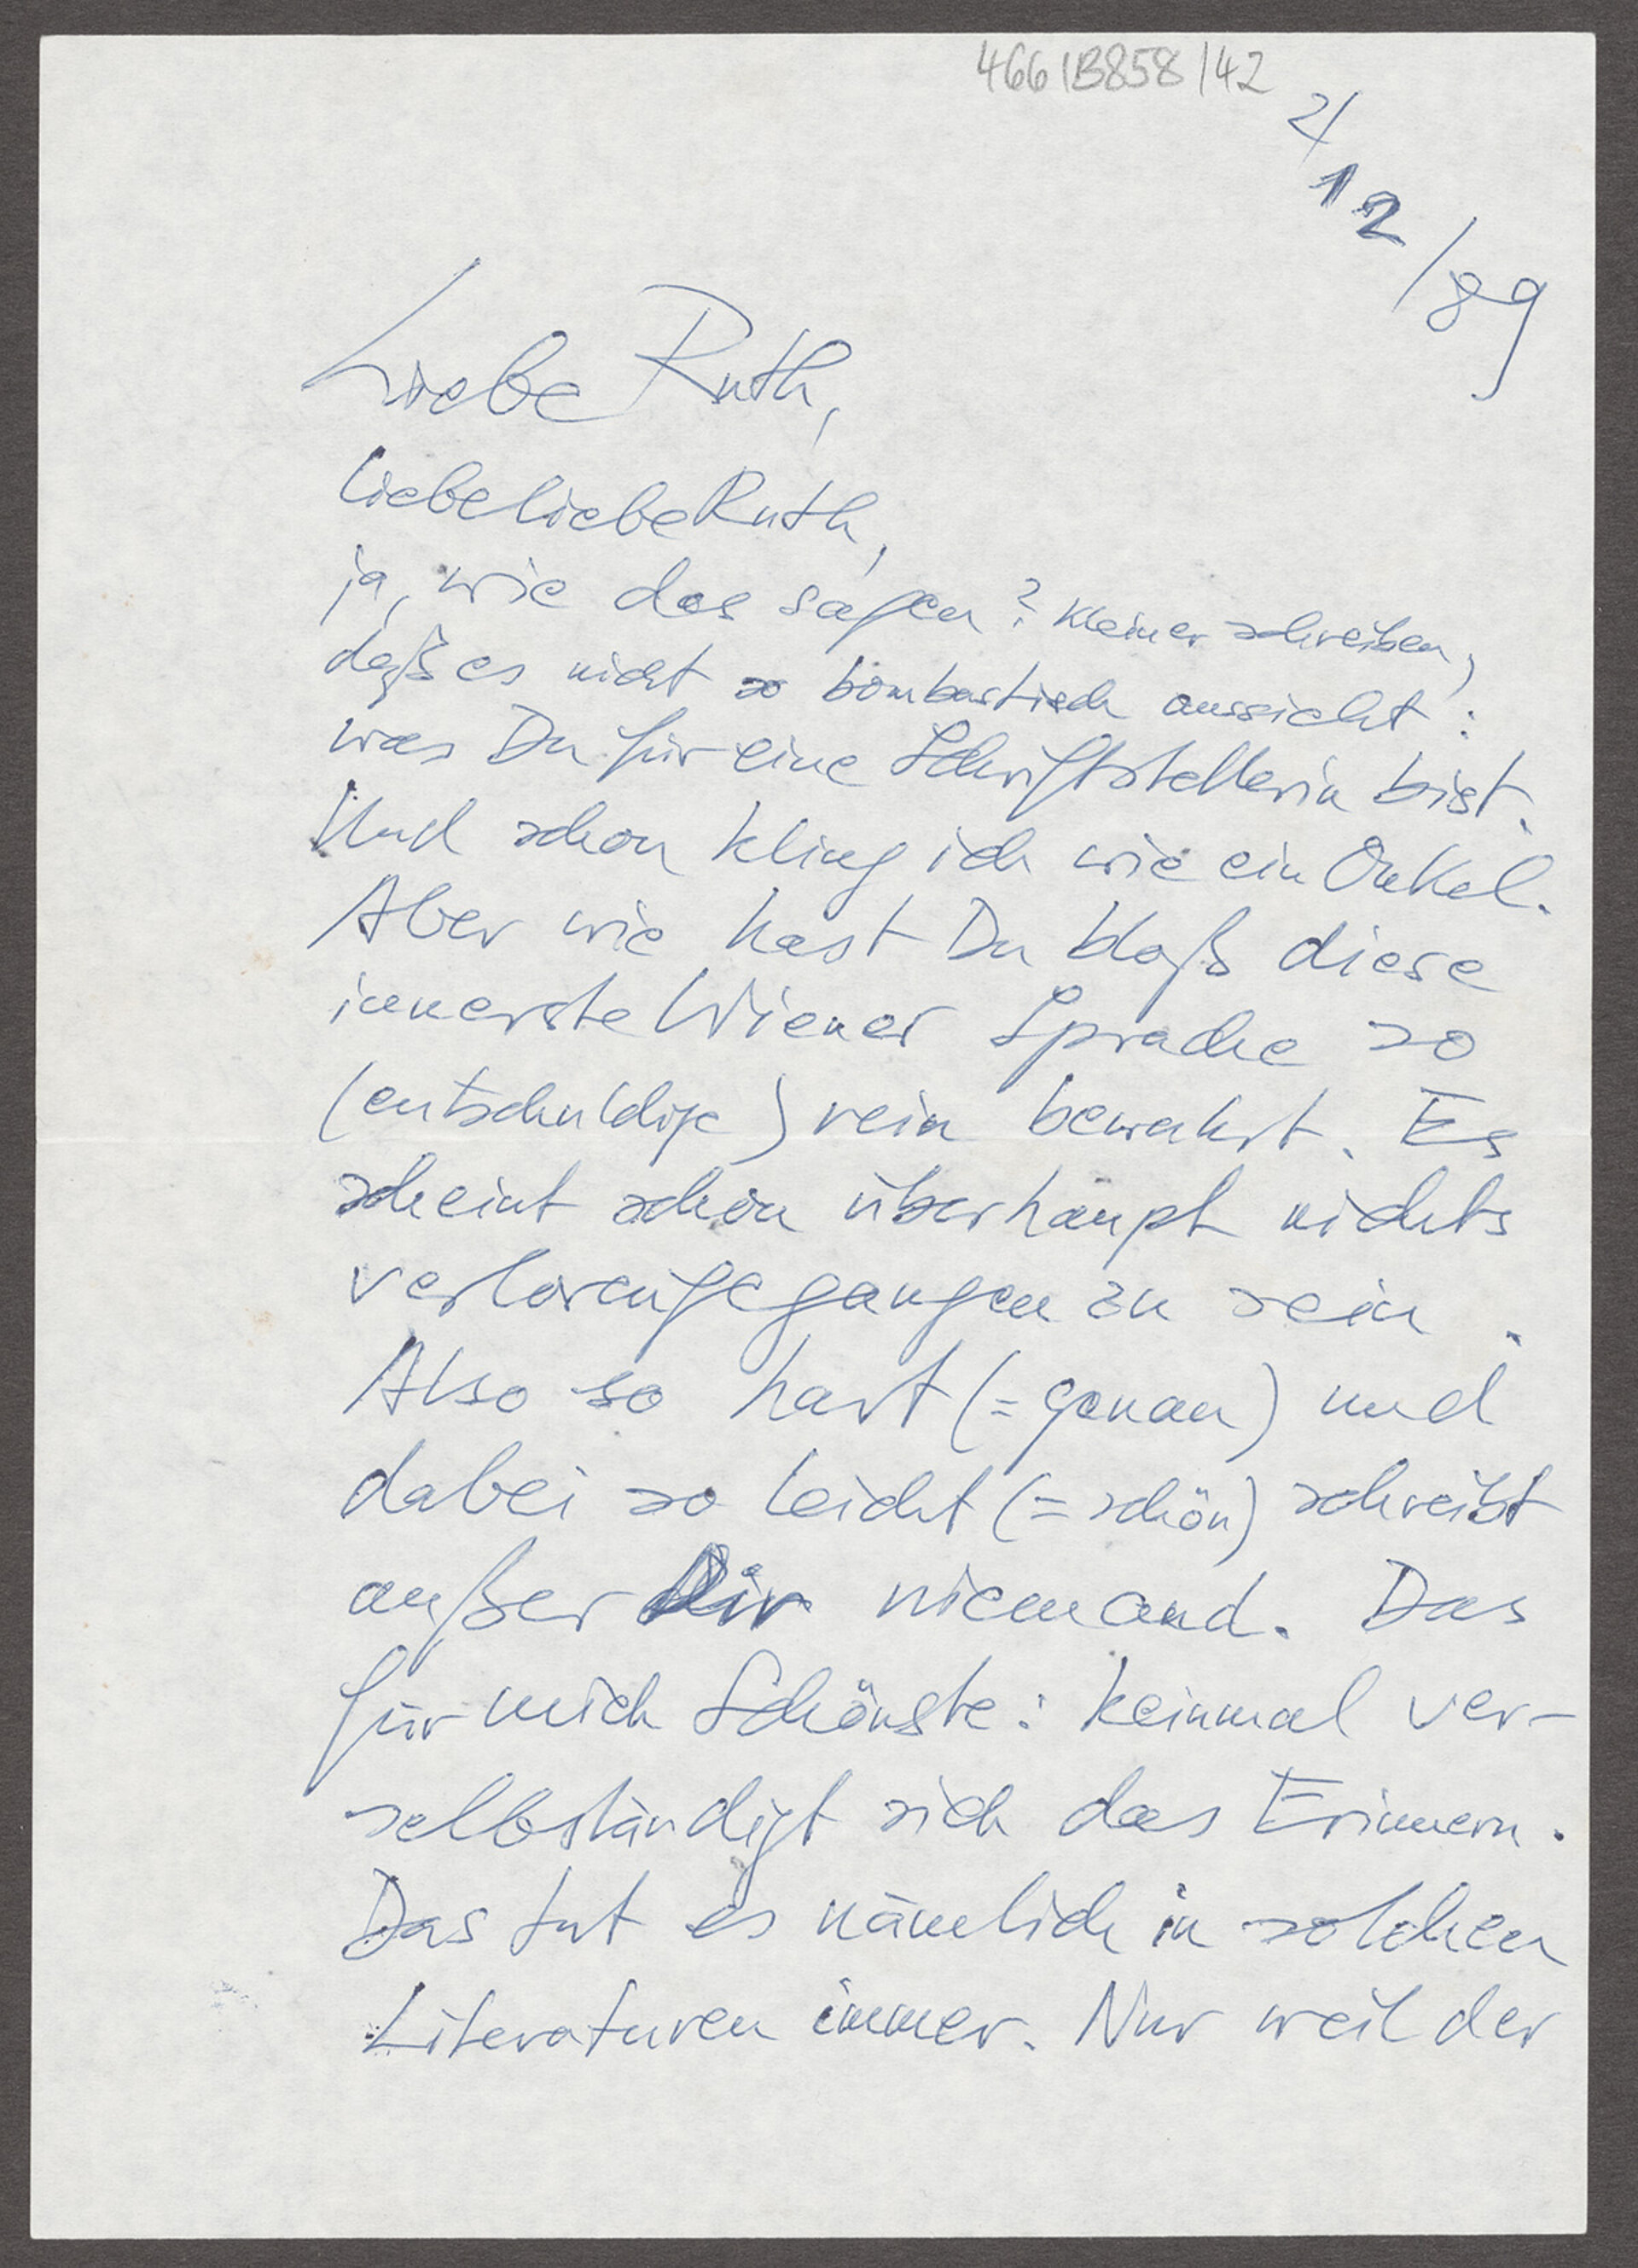 466/B858/42
2/
12
/89
Liebe Ruth,
liebeliebeRuth,
ja, wie das sagen? Kleiner schreiben,
daß es nicht so bombastisch aussieht:
was Du für eine Schriftstellerin bist.
Und schon kling ich wie ein Onkel.
Aber wie hast Du bloß diese
innerste Wiener Sprache so
(entschuldige) rein bewahrt. Es
scheint schon überhaupt nichts
verlorengegangen zu sein.
Also so hart (= genau) und
dabei so leicht (= schön) schreibt
außer Dir niemand. Das
für mich Schönste: keinmal ver-
selbständigt sich das Erinnern.
Das tut es nämlich in solchen
Literaturen immer. Nur weil der